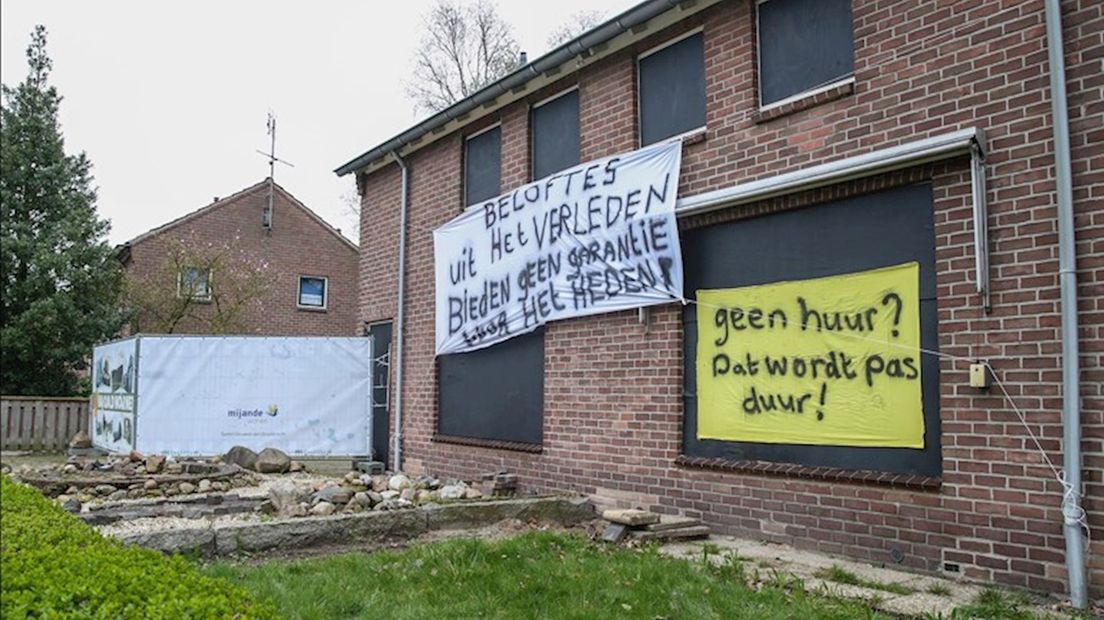 BELOFTES
uit Het VERLEDEN
BIEDEN GEEN GARANTIE
HET HEDEN!
geen huur?
Dat wordt pas
duur!
mijande
wonen